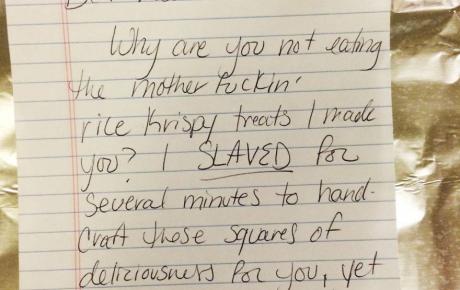 Why are you not eating
the mother fuckin'
rice krispy treats I made
you? I SLAVED for
several minutes to hand-
craft those squares of
deliciousness for you, yet